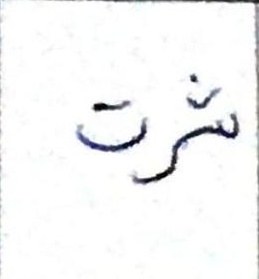 شرت